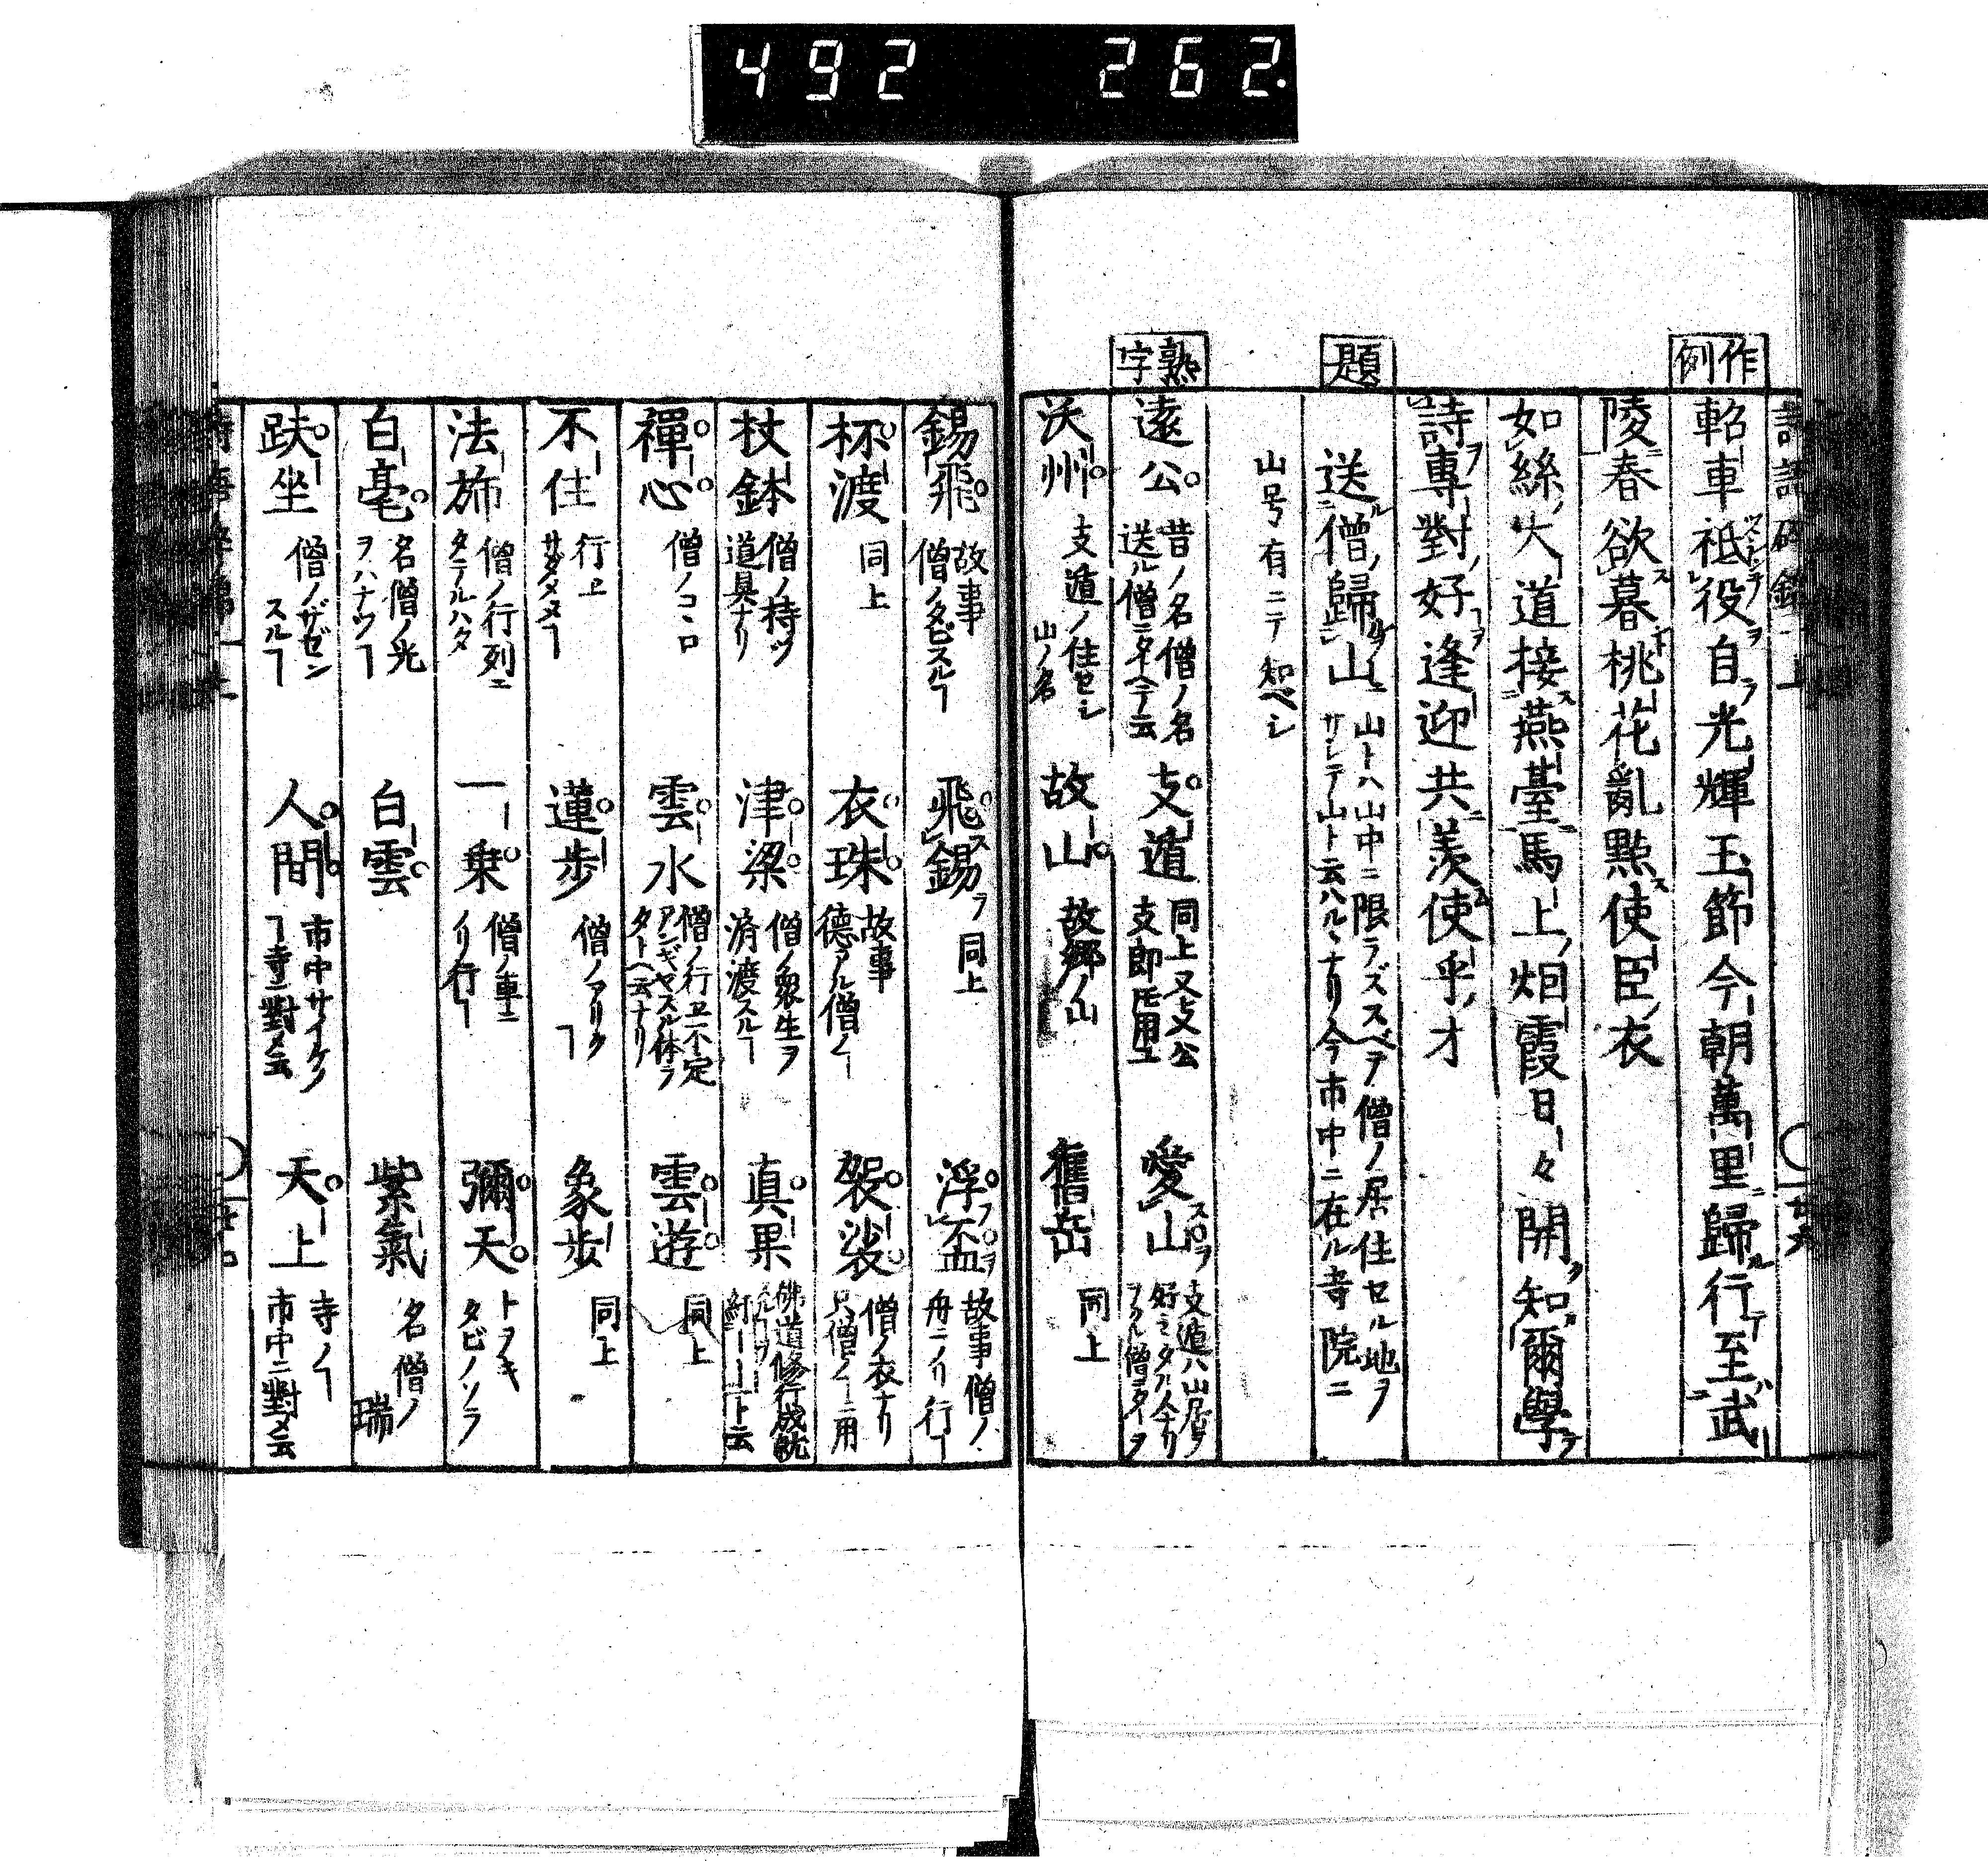 492 262.
作例
軺車祗役自光輝玉節今朝萬里歸行至武
陵春欲暮桃花亂點使臣衣
如絲大道接燕臺馬上烟霞日々開知爾學
詩專對好逢迎共羨使乎才
題
送僧歸山 山トハ山中ニ限ラズスベテ僧ノ居住セル地ヲ
サシテ山ト云ハルヽナリ今市中ニ在ル寺院ニ
山号有ニテ知ベシ
熟字
遠公 昔ノ名僧ノ名送ル僧ニタトヘテ云 支遁 同上又支公支郎トモ用ユ 愛山
沃州 支遁ノ住セシ山ノ名 故山 故郷ノ山 舊岳 同上
錫飛 故事僧ノタビスルヿ 飛錫 同上 浮盃 故事僧ノ舟ニノリ行ヿ
杯渡 同上 衣珠 故事德アル僧ノヿ 袈裟 僧ノ衣ナリ只僧ノヿニ用
杖鉢 僧ノ持ツ道具ナリ 津梁 僧ノ衆生ヲ済渡スルヿ 真果
禪心 僧ノコヽロ 雲水 雲遊 同上
不住 行エサダメヌヿ 蓮步 僧ノアリクヿ 象步 同上
法旆 僧ノ行列ニタテルハタ 一乗 僧ノ車ニノリ行ヿ 彌天 トヲキタビノソラ
白毫 名僧ノ光ヲハナツヿ 白雲 紫氣 名僧ノ瑞
趺坐 僧ノザゼンスルヿ 人間 天上 寺ノヿ市中ニ對メ云